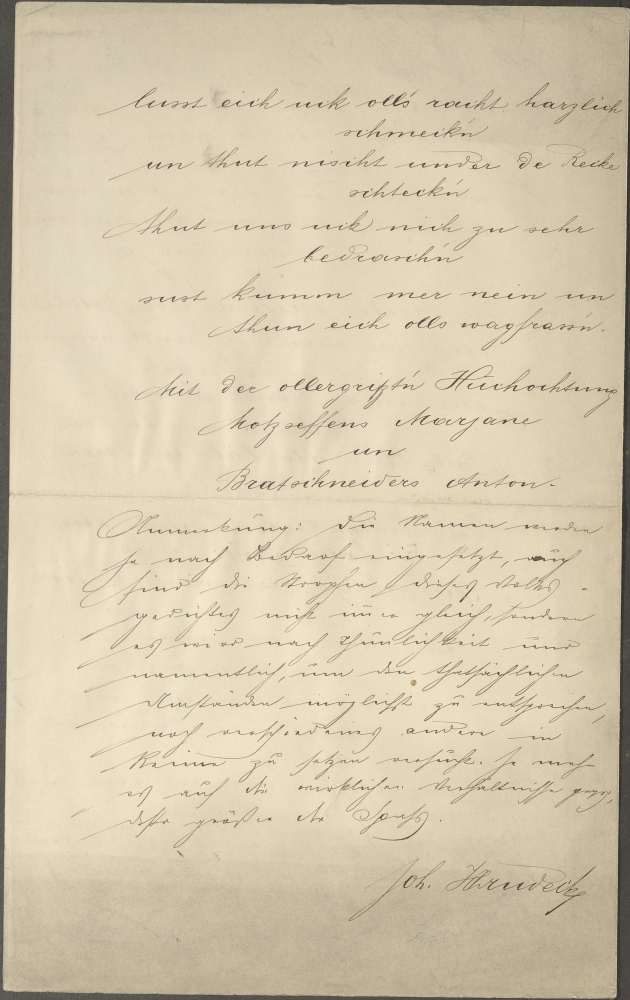 lusst eich uik olls racht harzlich
schmeck'n
un thut nischt under de Reike
schteck'n
thut uns uik nich zu sehr
bedrasch'n
sust kumm mer nein un
thun eich olls wagfrass'n.
Mit der ollergrißt'n Huchochtung
Motzseffens Marjane
un
Bratschneiders Anton.
Anmerkung: Die Namen werden
je nach Bedarf eingesetzt, auch
sind die Strophen dieses Volks-
gedichtes nicht immer gleich, sondern
es wird nach Thunlichkeit und
namentlich, um den thatsächlichen
Umständen möglichst zu entsprechen,
noch verschiedenes andere in
Reime zu setzen versucht. Je mehr
es auf die wirklichen Verhältnisse passt,
desto größer der Spaß.
Joh.